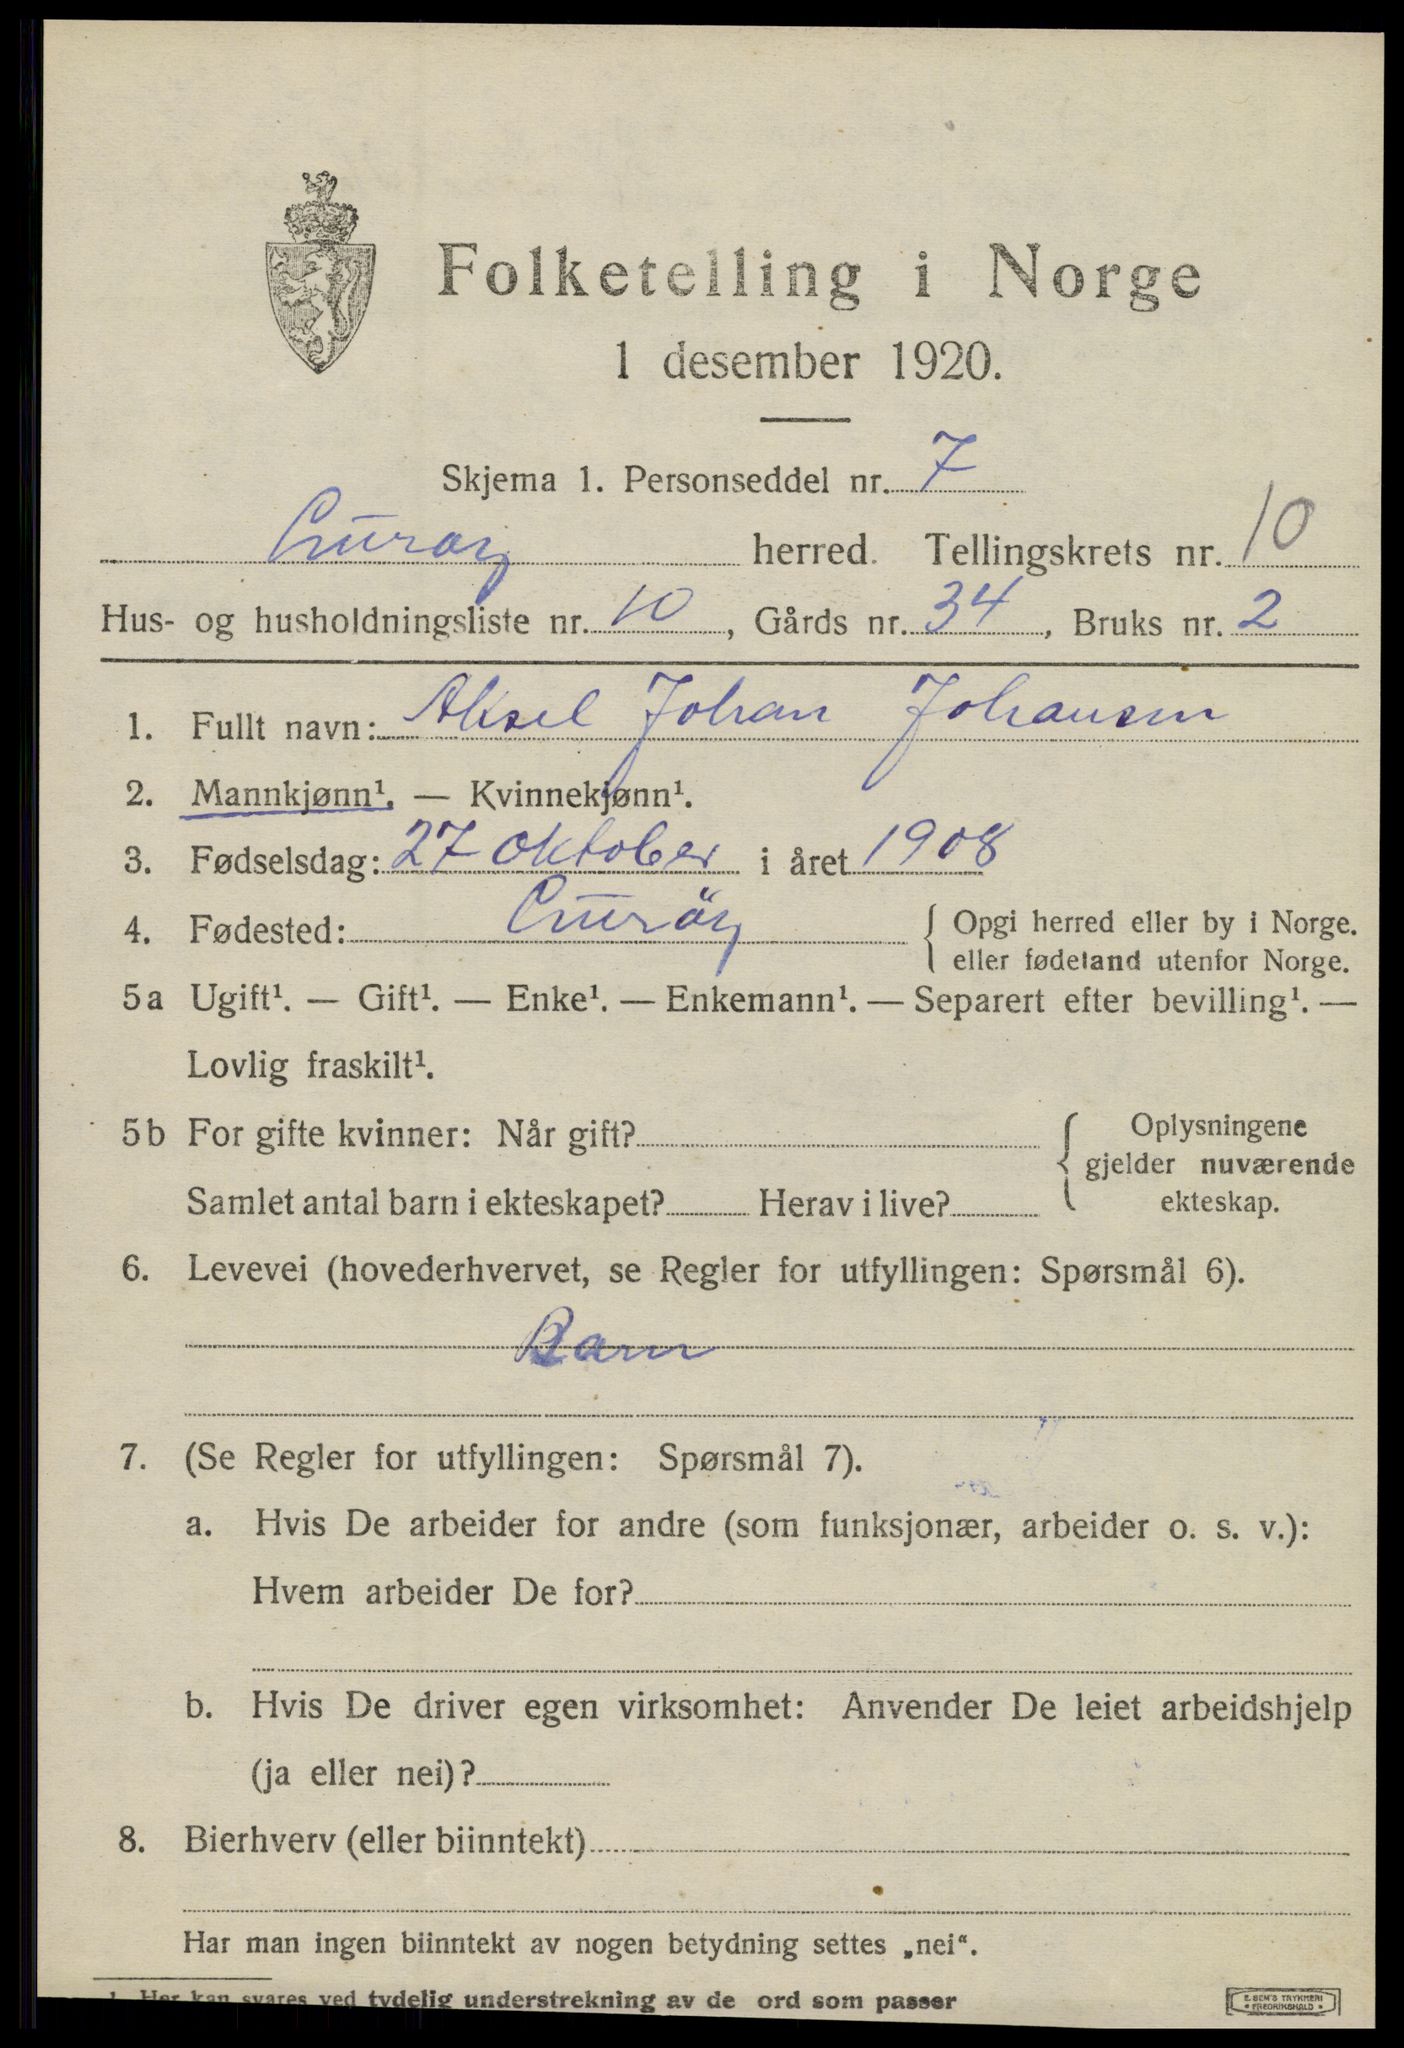 Folketelling i Norge
1 desember 1920.
Skjema 1. Personseddel nr. 7
Lurøy herred. Tellingskrets nr. 10
Hus- og husholdningsliste nr. 10, Gårds nr. 34, Bruks nr. 2
1. Fullt navn: Aksel Johan Johansen
2. Mannkjønn¹. — Kvinnekjønn¹.
3. Fødselsdag: 27 oktober i året 1908
4. Fødested: Luröy { Opgi herred eller by i Norge.
eller fødeland utenfor Norge.
5a Ugift¹. — Gift¹. — Enke¹. — Enkemann¹. — Separert efter bevilling¹. —
Lovlig fraskilt¹.
5b For gifte kvinner: Når gift? { Oplysningene
gjelder nuværende
Samlet antal barn i ekteskapet? Herav i live? ekteskap.
6. Levevei (hovederhvervet, se Regler for utfyllingen: Spørsmål 6).
Barn
7. (Se Regler for utfyllingen: Spørsmål 7).
a. Hvis De arbeider for andre (som funksjonær, arbeider o. s. v.):
Hvem arbeider De for?
b. Hvis De driver egen virksomhet: Anvender De leiet arbeidshjelp
(ja eller nei)?
8. Bierhverv (eller biinntekt)
Har man ingen biinntekt av nogen betydning settes „nei“.
1 Her kan svares ved tydelig understrekning av de ord som passer
E. SEM'S TRYKKERI
• FREDRIKSHALD •